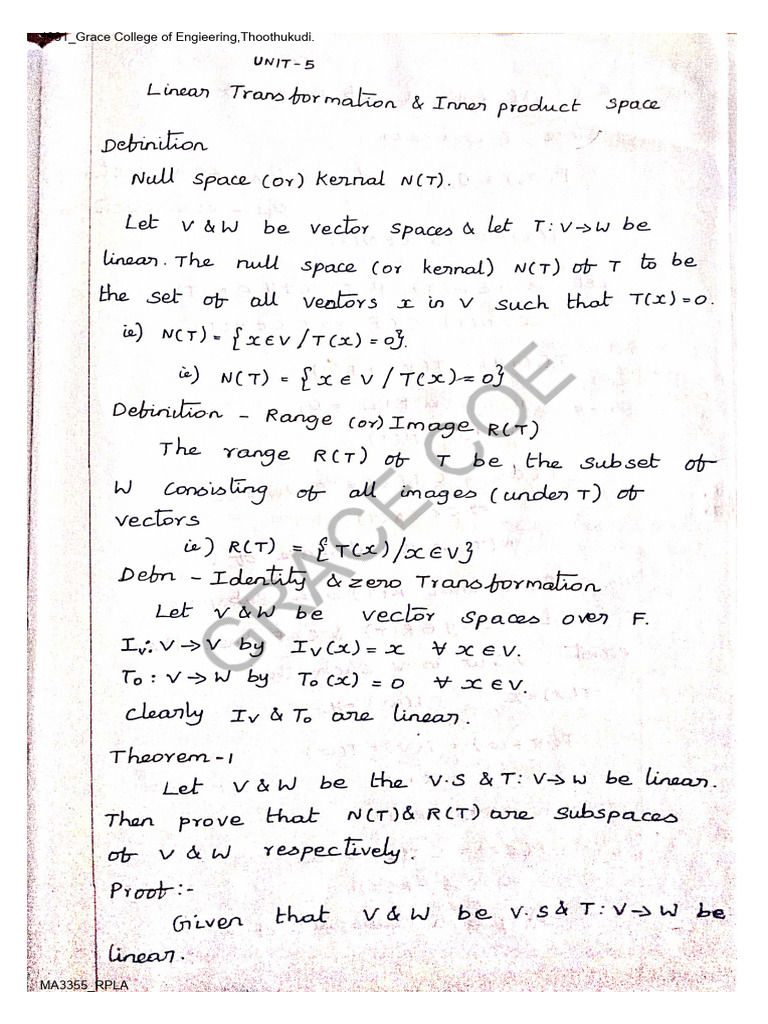 _Grace College of Engieering,Thoothukudi.
UNIT-5
Linear Transformation & Inner product space
Definition
Null space (or) kernal N(T).
Let V & W be vector spaces & let T: V→W be
linear. The null space (or kernal) N(T) of T to be
the set of all vectors x in V such that T(x)=0.
ie) N(T) = {x∈V / T(x) = 0}.
ie) N(T) = {x ∈ V / T(x) = 0}
Definition - Range (or) Image R(T)
The range R(T) of T be, the subset of
W consisting of all images (under T) of
vectors
ie) R(T) = {T(x)/x∈V}
Defn - Identity & zero Transformation
Let V & W be vector spaces over F.
Iv: V→V by Iv(x) = x ∀ x ∈ V.
To : V→W by To(x) = 0 ∀ x ∈ V.
clearly Iv & To are linear.
Theorem -1
Let V & W be the V.S & T: V→W be linear.
Then prove that N(T) & R(T) are subspaces
of V & W respectively.
Proof :-
Given that V & W be V.S & T: V→W be
linear.
GRACE COE
MA3355_RPLA